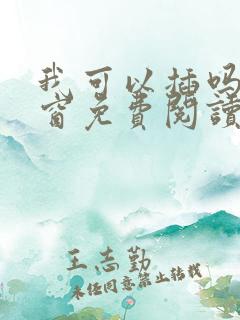 我可以插吗
窗免费閱讀
王志勤
未经同意禁止转载